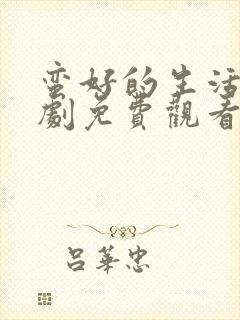 蛮好的生活
劇免費觀看
吕華忠